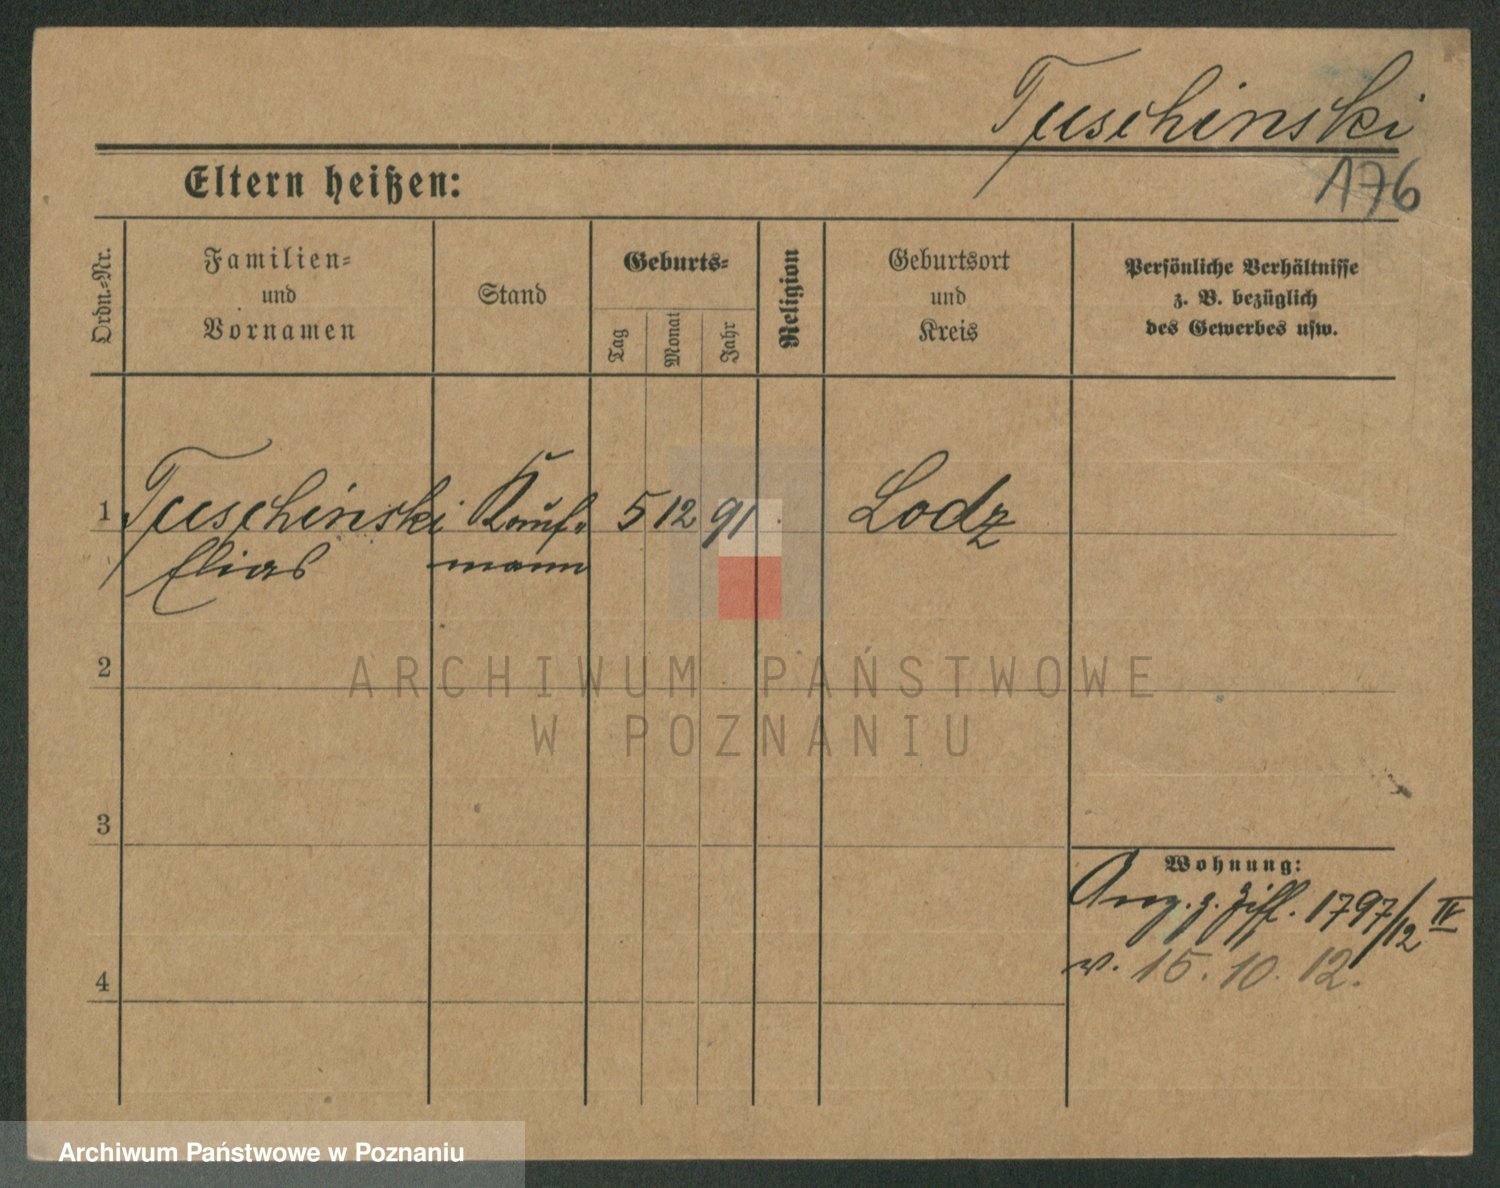 Tuschinski
176
Eltern heißen:
Ordn.-Nr.
Familien-
und
Vornamen
Stand
Geburts-
Tag
Monat
Jahr
Religion
Geburtsort
und
Kreis
Persönliche Verhältnisse
z. B. bezüglich
des Gewerbes usw.
1 Tuschinski Kauf- 5 12 91 Lodz
Elias mann
2
ARCHIWUM PAŃSTWOWE
W POZNANIU
3
Wohnung:
Ang. z. Ziff. 1797/12 IV
v. 15. 10. 12.
4
Archiwum Państwowe w Poznaniu